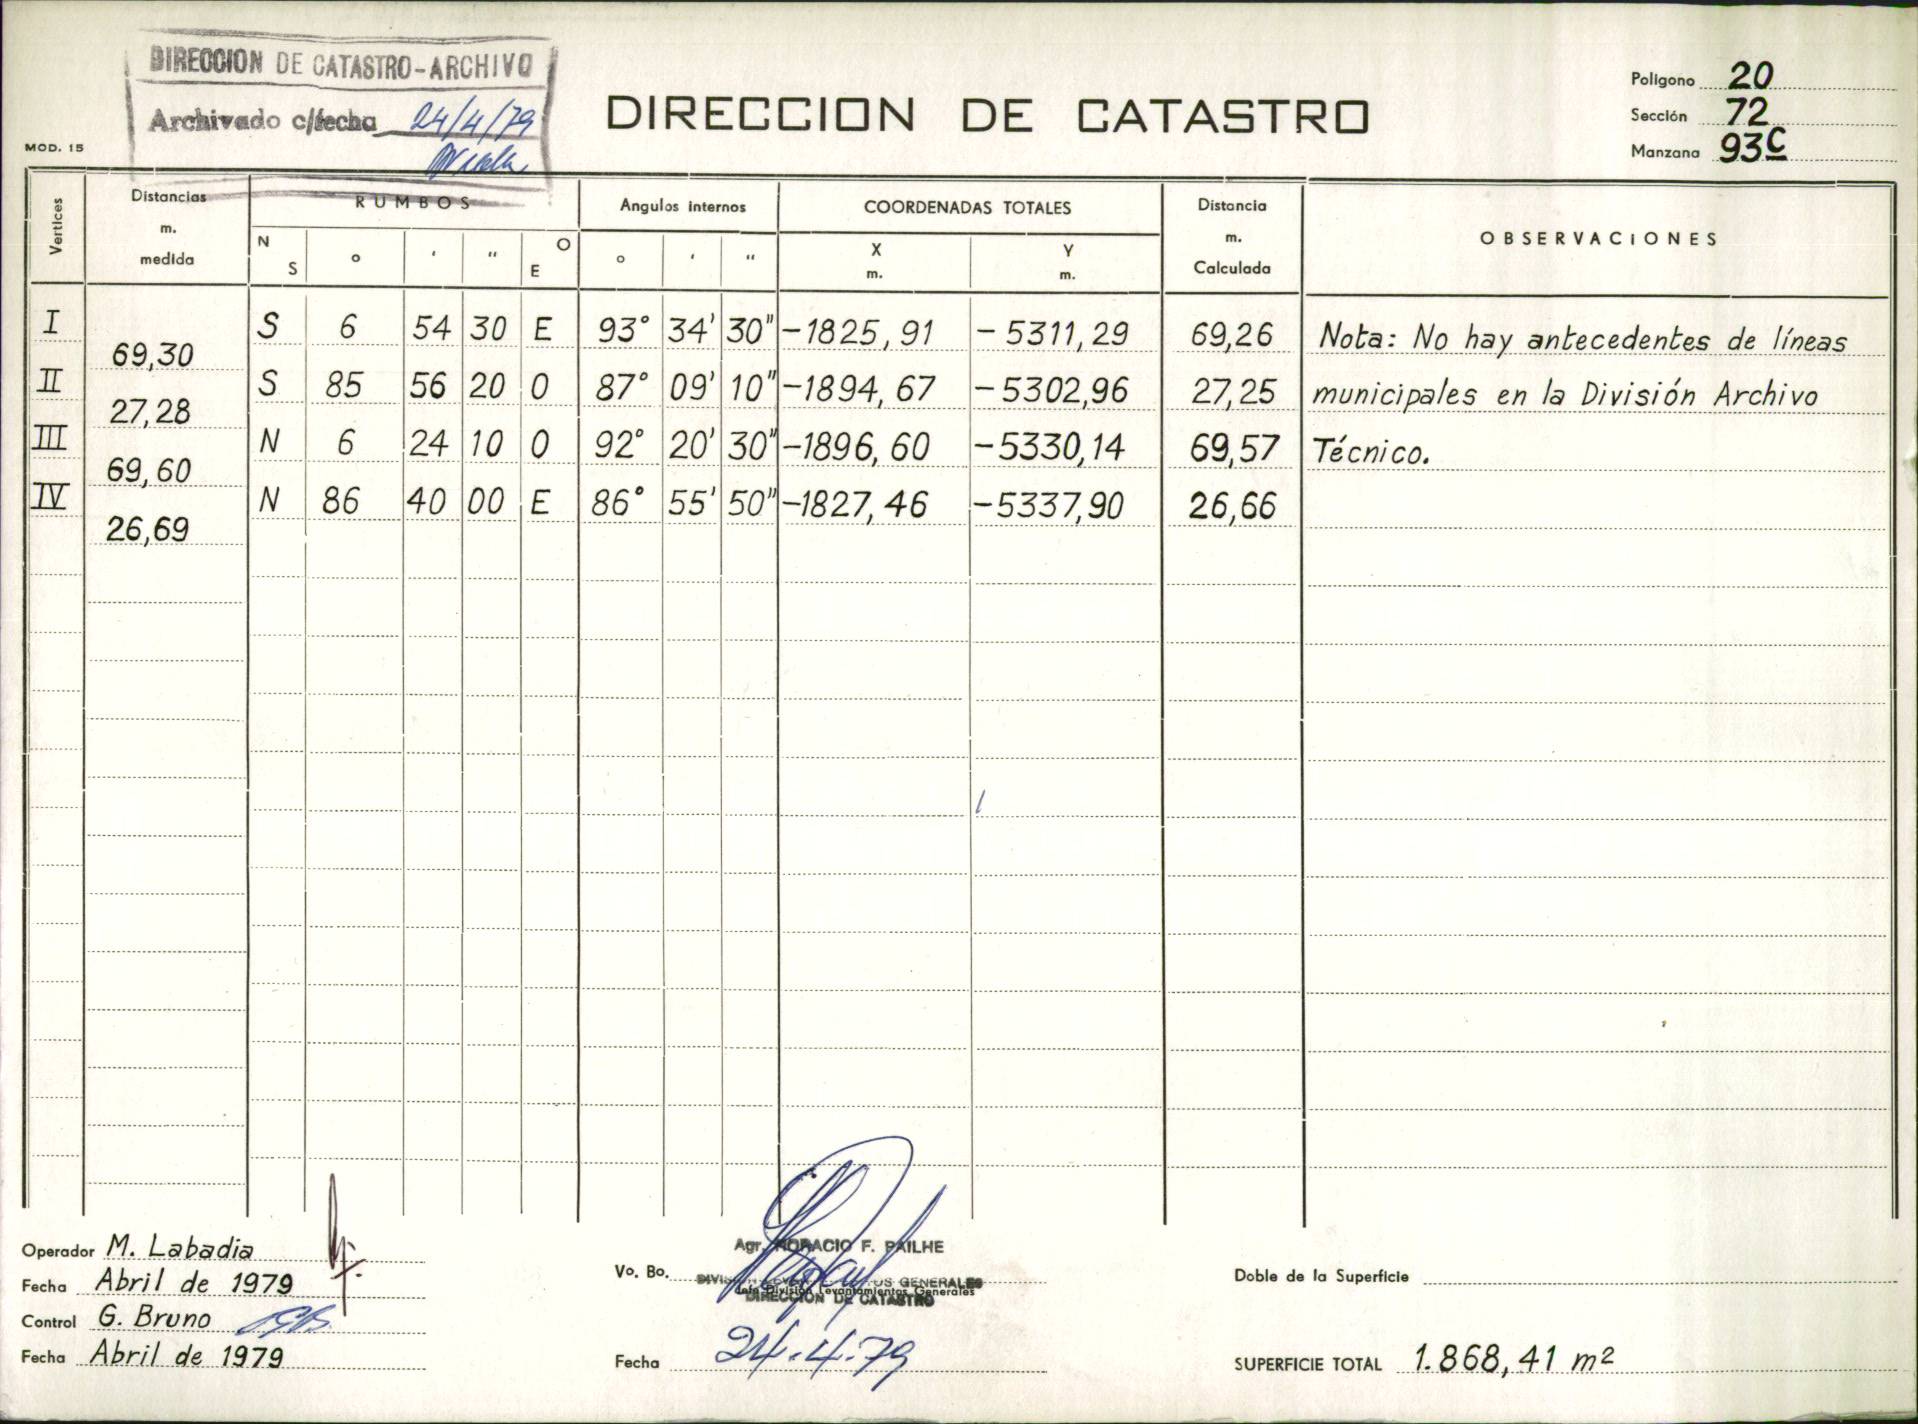 DIRECCION DE CATASTRO-ARCHIVO
Archivado c/fecha 24/4/79
DIRECCION DE CATASTRO
Poligono 20
Sección 72
Manzana 93C
MOD. 15
Vertices Distancias m. medida RUMBOS Angulos internos COORDENADAS TOTALES Distancia m. Calculada OBSERVACIONES
N S o ' " O E o ' " X m. Y m.
I S 6 54 30 E 93° 34' 30" -1825,91 -5311,29 69,26 Nota: No hay antecedentes de líneas
69,30
II S 85 56 20 O 87° 09' 10" -1894,67 -5302,96 27,25 municipales en la División Archivo
27,28
III N 6 24 10 O 92° 20' 30" -1896,60 -5330,14 69,57 Técnico.
69,60
IV N 86 40 00 E 86° 55' 50" -1827,46 -5337,90 26,66
26,69
Operador M. Labadia
Fecha Abril de 1979
Control G. Bruno
Fecha Abril de 1979
Vo. Bo.
Agr. HORACIO F. PAILHE
Jefe División Levantamientos Generales
DIRECCION DE CATASTRO
Fecha 24.4.79
Doble de la Superficie
SUPERFICIE TOTAL 1.868,41 m2